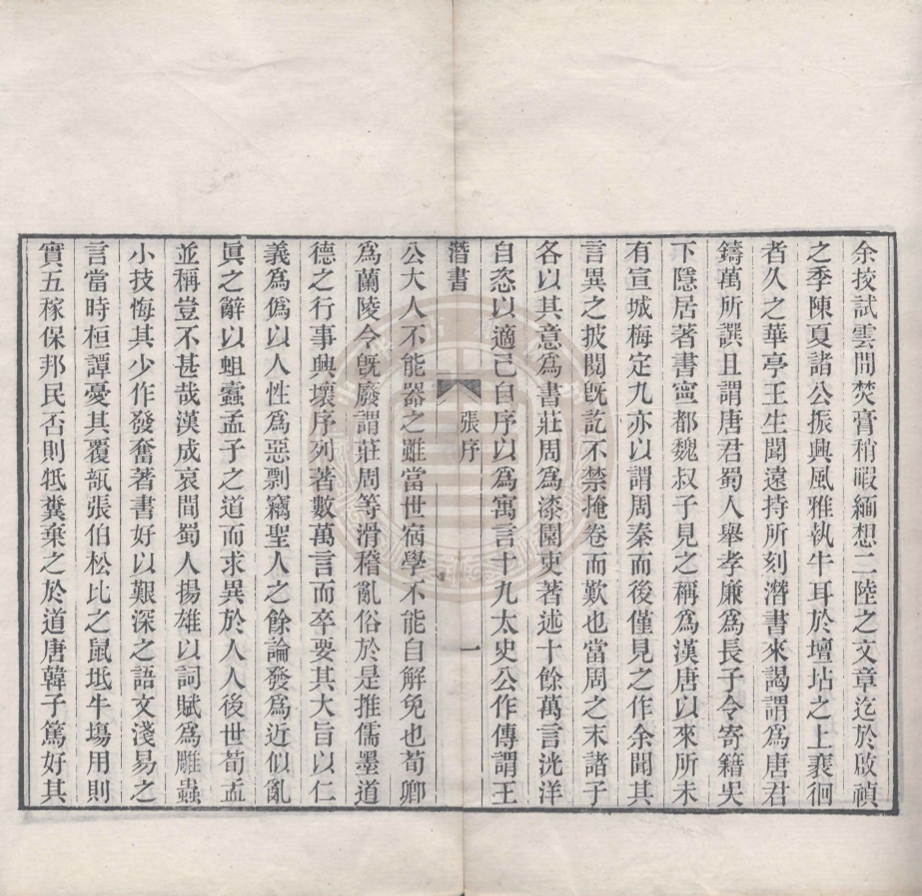 余挍試雲間焚膏稍暇緬想二陸之文章迄於啟禎
之季陳夏諸公振興風雅執牛耳於壇坫之上裵徊
者久之華亭王生聞遠持所刻潛書來謁謂爲唐君
鑄萬所譔且謂唐君蜀人舉孝廉爲長子令寄籍吳
下隱居著書寗都魏叔子見之稱爲漢唐以來所未
有宣城梅定九亦以謂周秦而後僅見之作余聞其
言異之披閱旣訖不禁掩卷而歎也當周之末諸子
各以其意爲書莊周爲漆園吏著述十餘萬言洸洋
自恣以適己自序以爲寓言十九太史公作傳謂王
潛書
張序
一
公大人不能器之雖當世宿學不能自解免也荀卿
爲蘭陵令旣廢謂莊周等滑稽亂俗於是推儒墨道
德之行事興壞序列著數萬言而卒要其大旨以仁
義爲僞以人性爲惡剽竊聖人之餘論發爲近似亂
眞之辭以蛆蠧孟子之道而求異於人人後世荀孟
並稱豈不甚哉漢成哀間蜀人揚雄以詞賦爲雕蟲
小技悔其少作發奮著書好以艱深之語文淺易之
言當時桓譚憂其覆瓿張伯松比之鼠坻牛塲用則
實五稼保邦民否則牴糞棄之於道唐韓子篤好其